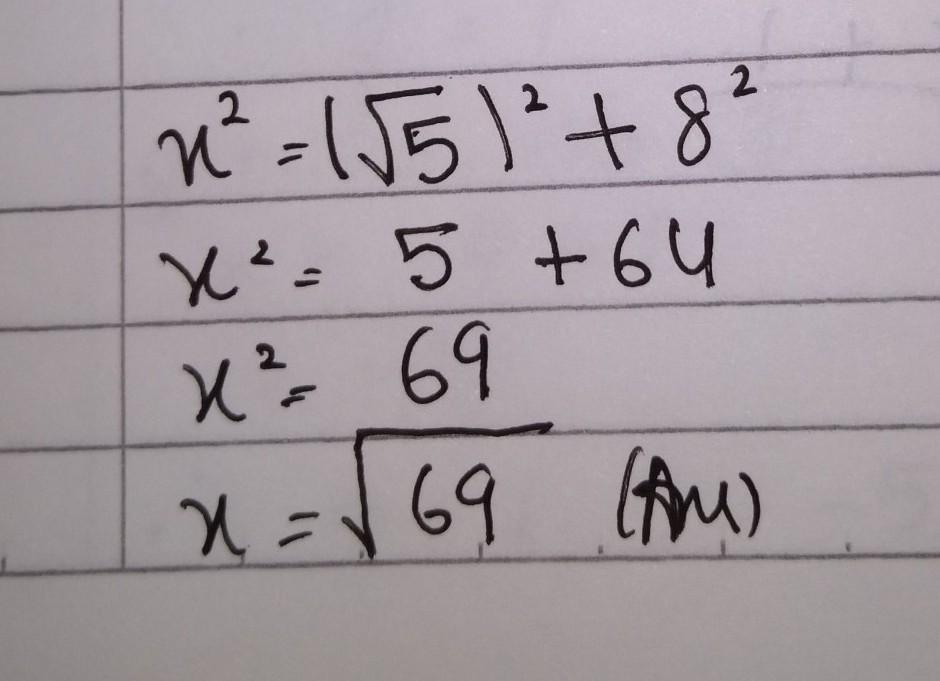 x² = (√5)² + 8²
x² = 5 + 64
x² = 69
x = √69 (Ans)